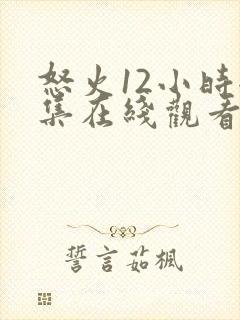 怒火12小時
集在綫觀看
誓言茹楓